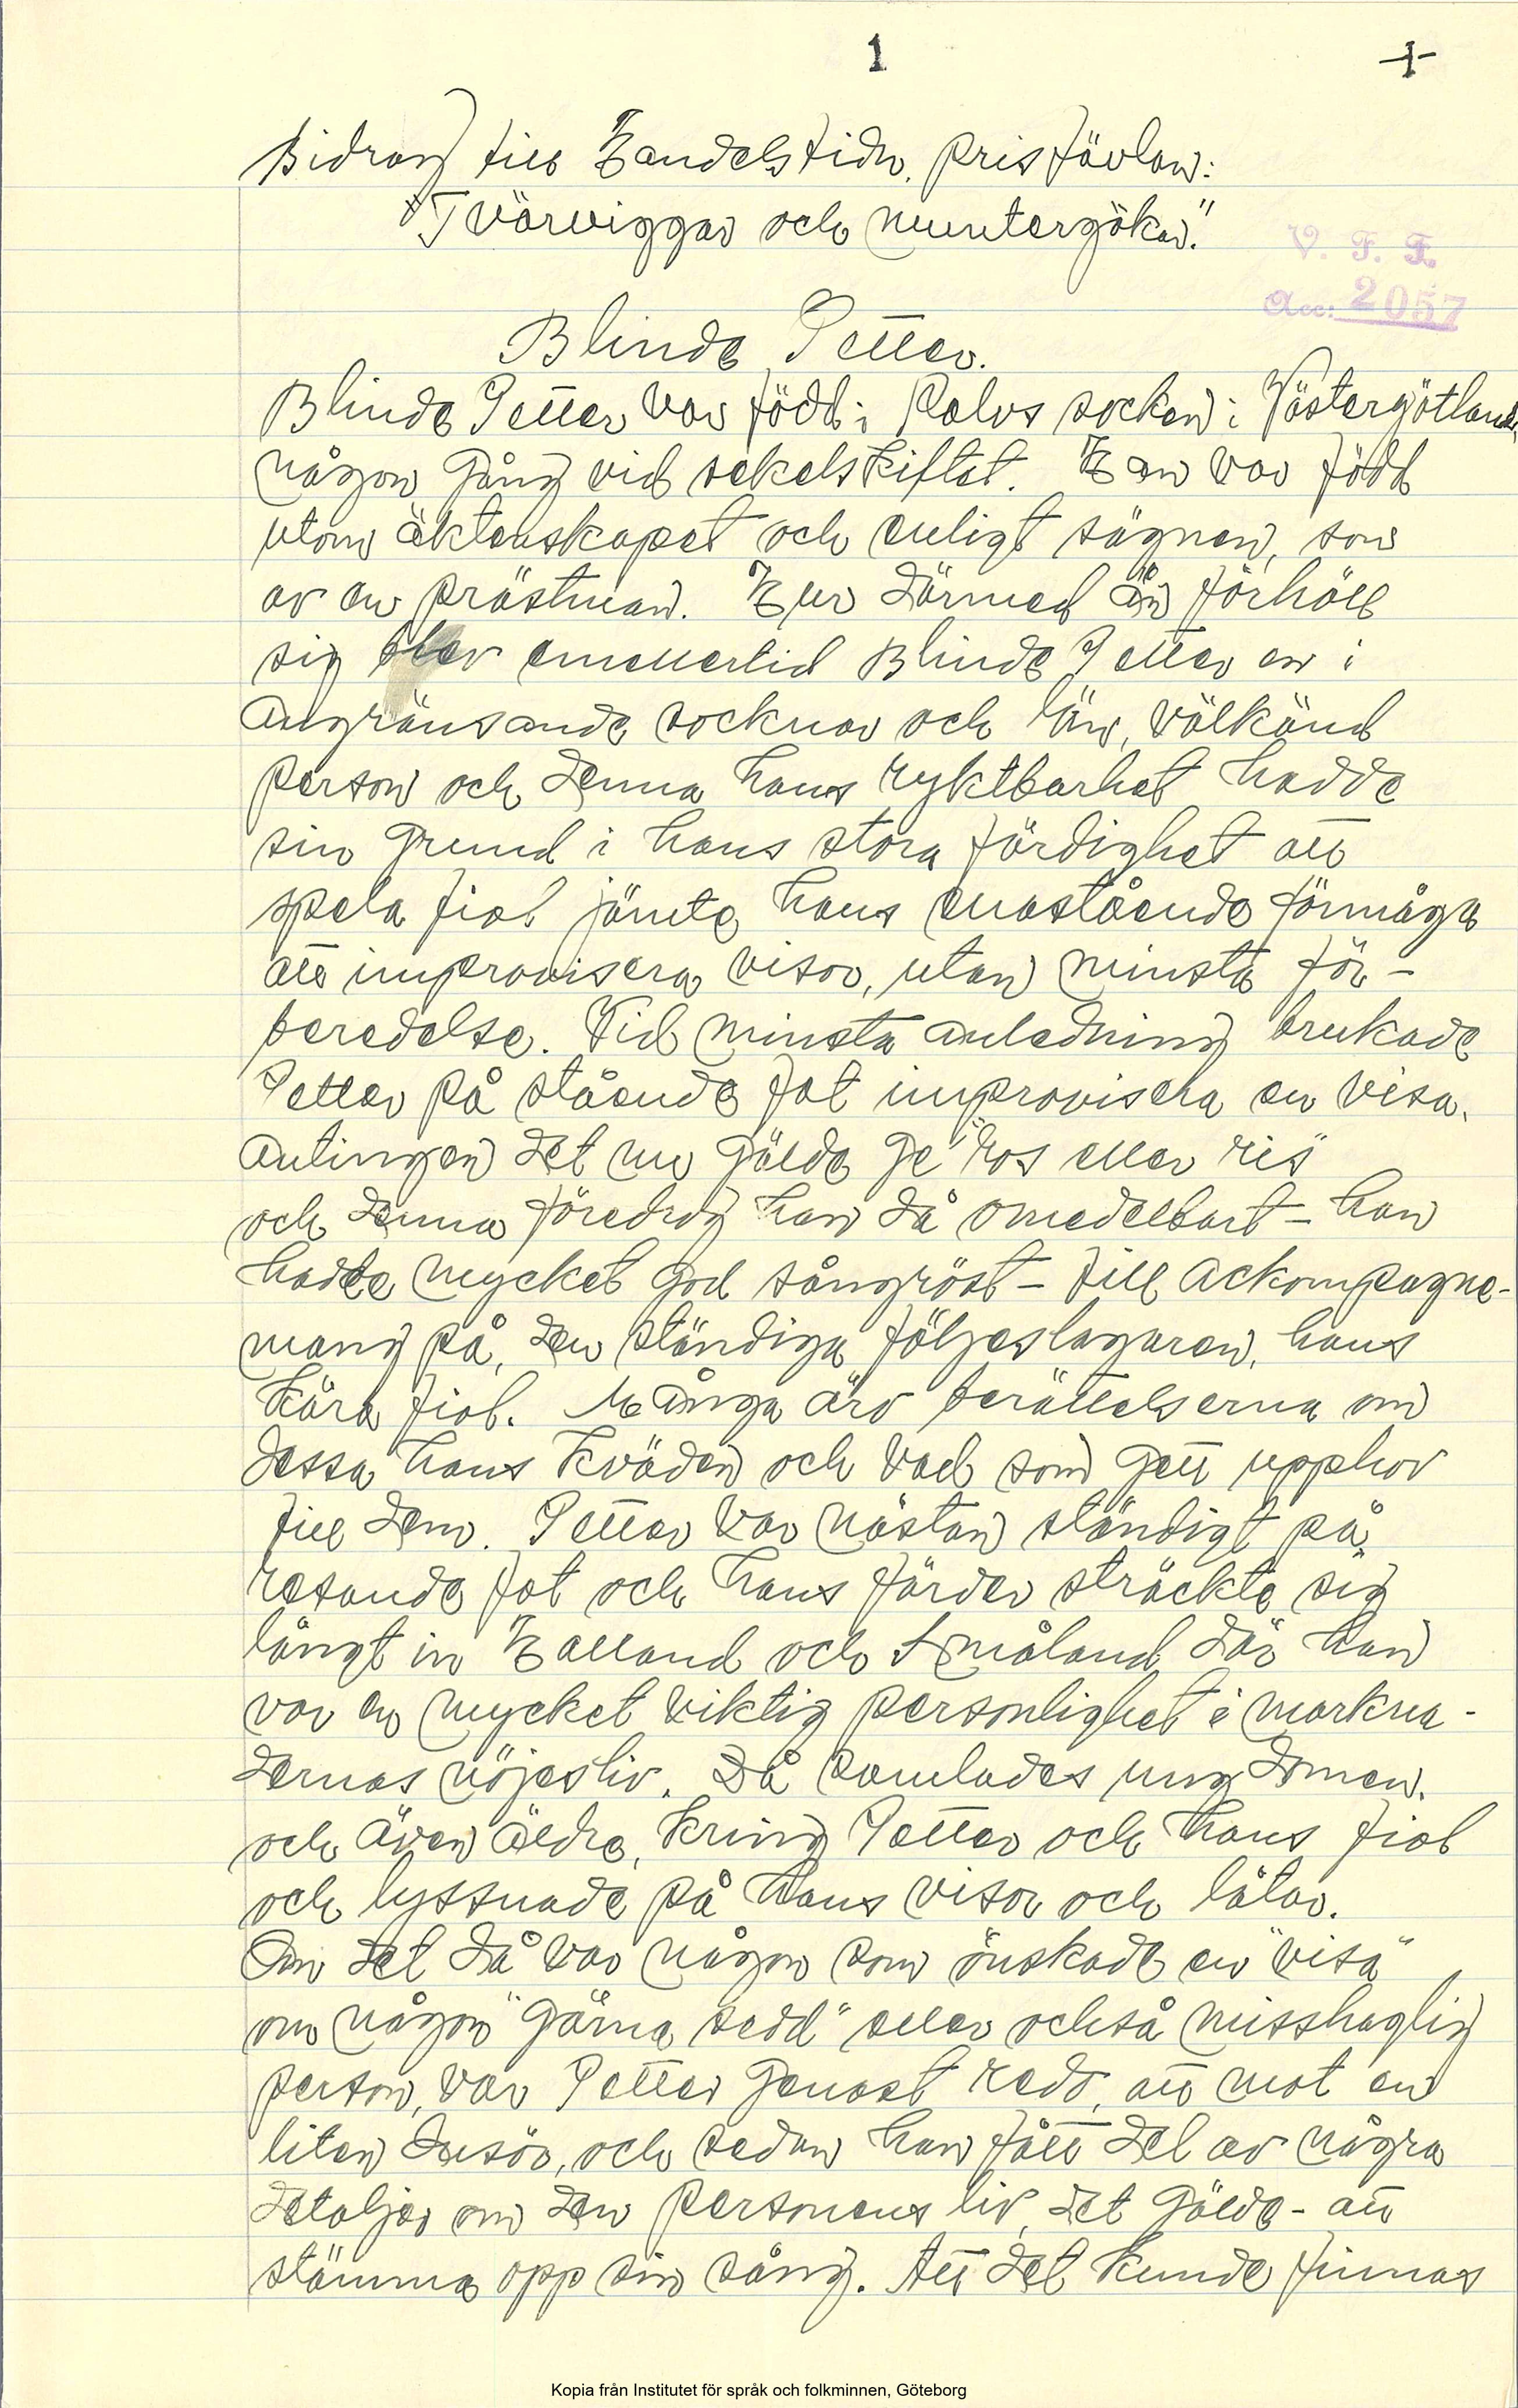 1
Bidrag till Handelstidn. pristävlan:
"Tvärviggar och muntergökar."
V. F. F.
Acc: 2057
Blinde Petter.
Blinde Petter var född i Kalvs socken i Västergötland,
någon gång vid sekelskiftet. Han var född
utom äktenskapet och enligt sägnen, son
av en prästman. Hur därmed än förhöll
sig blev emellertid Blinde Petter en i
angränsande socknar och län, välkänd
person och denna hans ryktbarhet hadde
sin grund i hans stora färdighet att
spela fiol jämte hans enastående förmåga
att improvisera visor, utan minsta för-
beredelse. Vid minsta anledning brukade
Petter på stående fot improvisera en visa,
antingen det nu gällde ge "ros eller ris"
och denna föredrog han då omedelbart - han
hadde mycket god sångröst - till ackompagne-
mang på, den ständiga följeslagaren, hans
kära fiol. Många äro berättelserna om
dessa hans kväden och vad som gett upphov
till dem. Petter var nästan ständigt på
resande fot och hans färder sträckte sig
långt in Halland och Småland där han
var en mycket viktig personlighet i markna-
dernas nöjesliv. Då samlades ungdomen,
och även äldre, kring Petter och hans fiol
och lyssnade på hans visor och låtar.
Om det då var någon som önskade en "visa"
om någon "gärna sedd" eller också misshaglig
person, var Petter genast redo, att mot en
liten dusör, och sedan han fått del av några
detaljer om den personens liv det gällde - att
stämma opp sin sång. Att det kunde finnas
Kopia från Institutet för språk och folkminnen, Göteborg